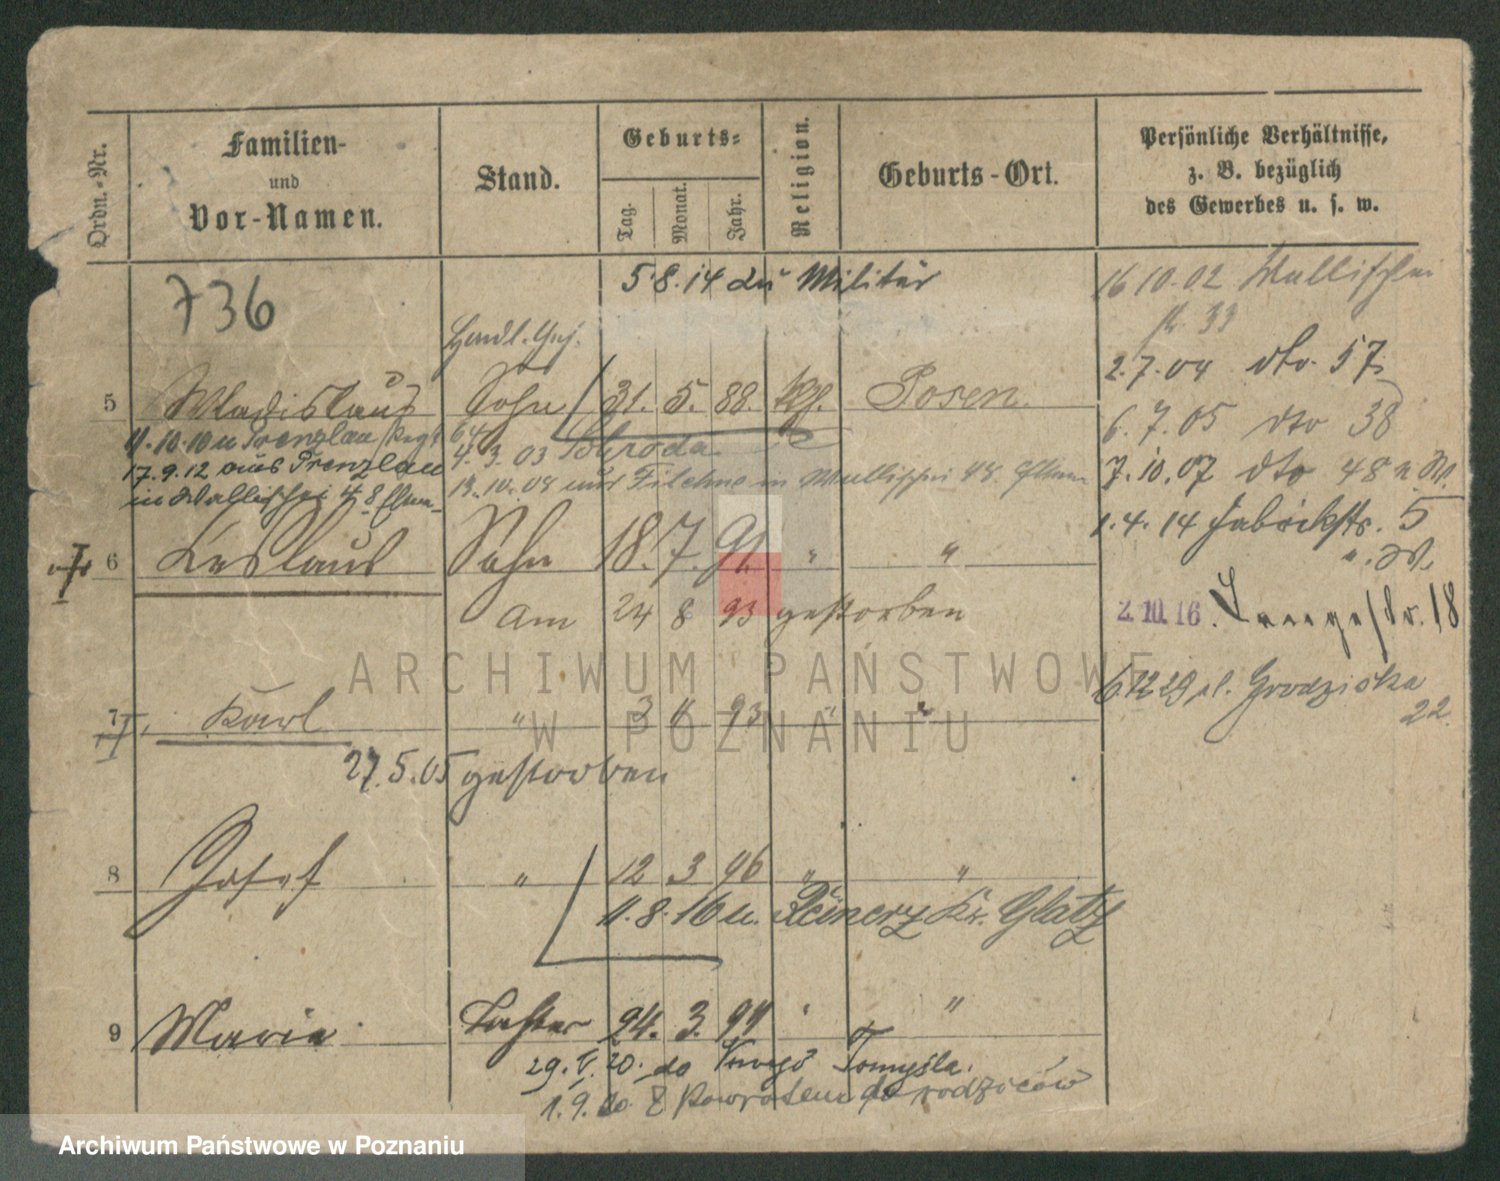 Ordn.-Nr.
Familien-
und
Vor-Namen.
Stand.
Geburts-
Tag.
Monat.
Jahr.
Religion.
Geburts-Ort.
Persönliche Verhältnisse,
z. B. bezüglich
des Gewerbes u. s. w.
736
5.8.14 zu Militär
16 10.02 Wallischei
33
2.7.04 dto. 57
5 Wladislaus Sohn 31. 5. 88. kth. Posen
6.7.05 dto 38
11.10.10 n Prenzlau
4.3.03 Schroda
17.9.12 aus Prenzlau
13.10.04 aus Filehne in Wallischei 48. Eltern
7.10.07 dto 48 n.W.
in Wallischei 48 Eltern
1.4.14 Fabrikstr. 5
6 Leslaus Sohn 18. 7. 91. " "
Am 24 8 93 gestorben
2.10.16. Langestr. 18
6 12 29 pl. Grodziska
22.
7 Karl " 3 11 93 " "
27.5.05 gestorben
8 Josef " 12 3 96 " "
11.8.16 n. Reinerz Kr. Glatz
9 Marie Tochter 24. 3. 94 " "
29.V.20. do Nowego Tomyśla.
1.9.20 z powrotem do rodziców
ARCHIWUM PAŃSTWOWE
W POZNANIU
Archiwum Państwowe w Poznaniu